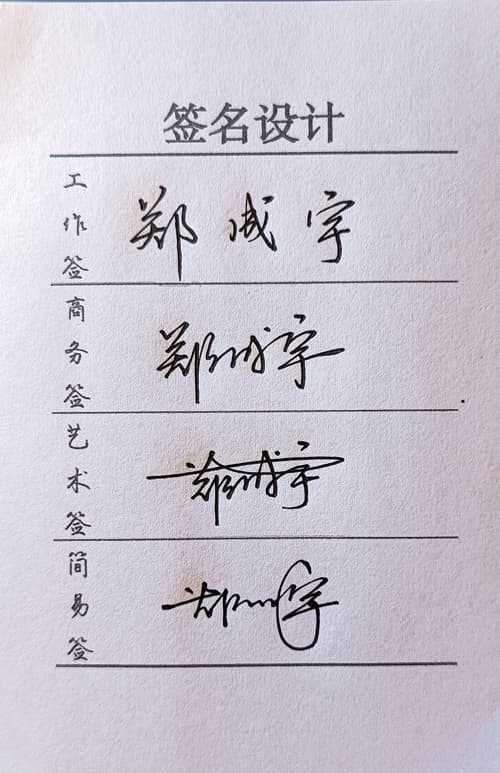 签名设计
工作签
郑成宇
商务签
郑成宇
艺术签
郑成宇
简易签
郑成宇